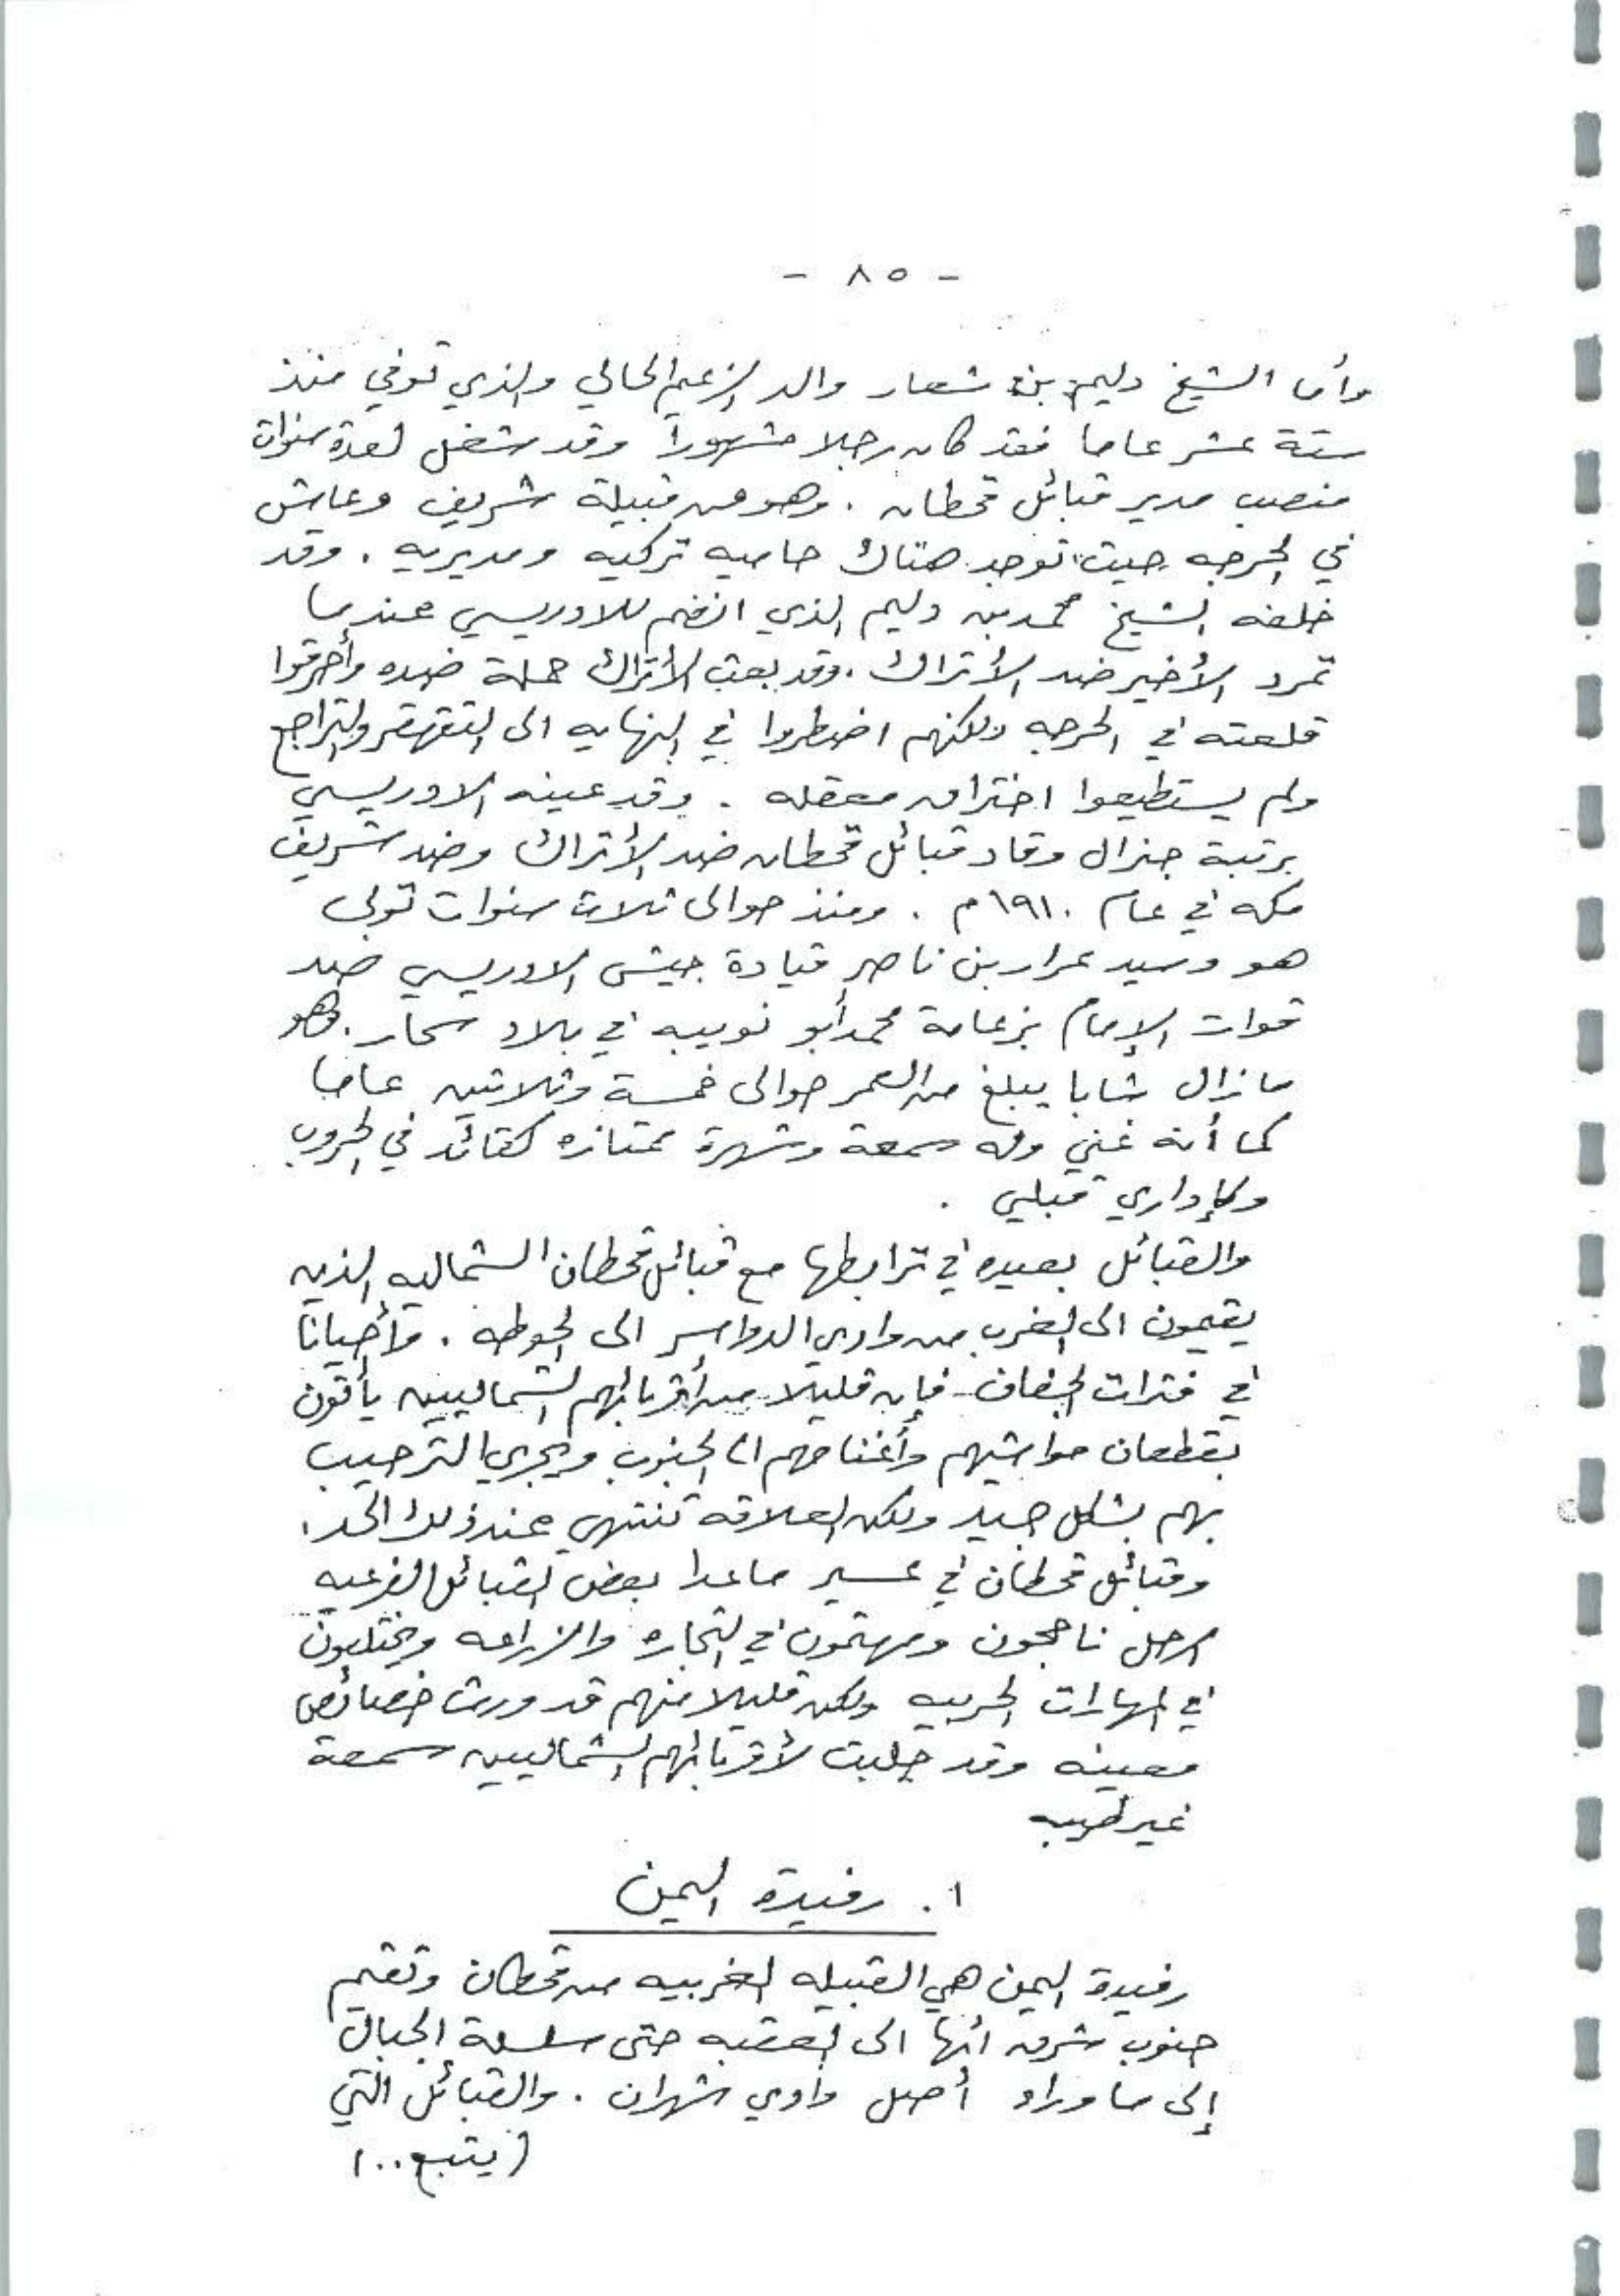 - ٨٥ -
وأما الشيخ دليم بن شعار والد الزعيم الحالي والذي توفي منذ
ستة عشر عاما فقد كان رجلا مشهوراً وقد شغل لعدة سنوات
منصب مدير قبائل قحطان . وهو من قبيلة شريف وعاش
في الحرجه حيث توجد هناك حاميه تركيه ومديريه . وقد
خلفه الشيخ محمد بن دليم الذي انضم للادريسي عندما
تمرد الأخير ضد الأتراك . وقد بعث الأتراك حملة ضده وأحرقوا
قلعته في الحرجه ولكنهم اضطروا في النهايه الى التقهقر والتراجع
ولم يستطيعوا اختراق معقله . وقد عينه الادريسي
برتبة جنرال وقاد قبائل قحطان ضد الأتراك وضد شريف
مكه في عام ١٩١٠م . ومنذ حوالى ثلاث سنوات تولى
هو وسيد عرار بن ناصر قيادة جيش الادريسي ضد
قوات الإمام بزعامة محمد أبو نويبه في بلاد سحار . وهو
مازال شابا يبلغ من العمر حوالى خمسة وثلاثين عاما
كما أنه غني وله سمعة وشهرة ممتازه كقائد في الحروب
وكإداري قبلي .
والقبائل بعيده في ترابطها مع قبائل قحطان الشماليه الذين
يقيمون الى الغرب من وادي الدواسر الى الحوطه . وأحياناً
في فترات الجفاف فإن قليلا من أقربائهم الشماليين يأتون
بقطعان مواشيهم وأغنامهم الى الجنوب ويجري الترحيب
بهم بشكل جيد ولكن العلاقه تنتهي عند ذلك الحد .
وقبائل قحطان في عسير ماعدا بعض القبائل الفرعيه
الرحل ناجحون ومهتمون في التجاره والزراعه ويختلفون
في المهارات الحربيه ولكن قليلا منهم قد ورث خصائص
معينه وقد جلبت لأقربائهم الشماليين سمعة
غير طيبه
١. رفيدة اليمن
رفيدة اليمن هي القبيله الغربيه من قحطان وتقيم
جنوب شرق ابها الى العقبه حتى سلسلة الجبال
إلى ماوراء أصل وادي شهران . والقبائل التي
(يتبع..)